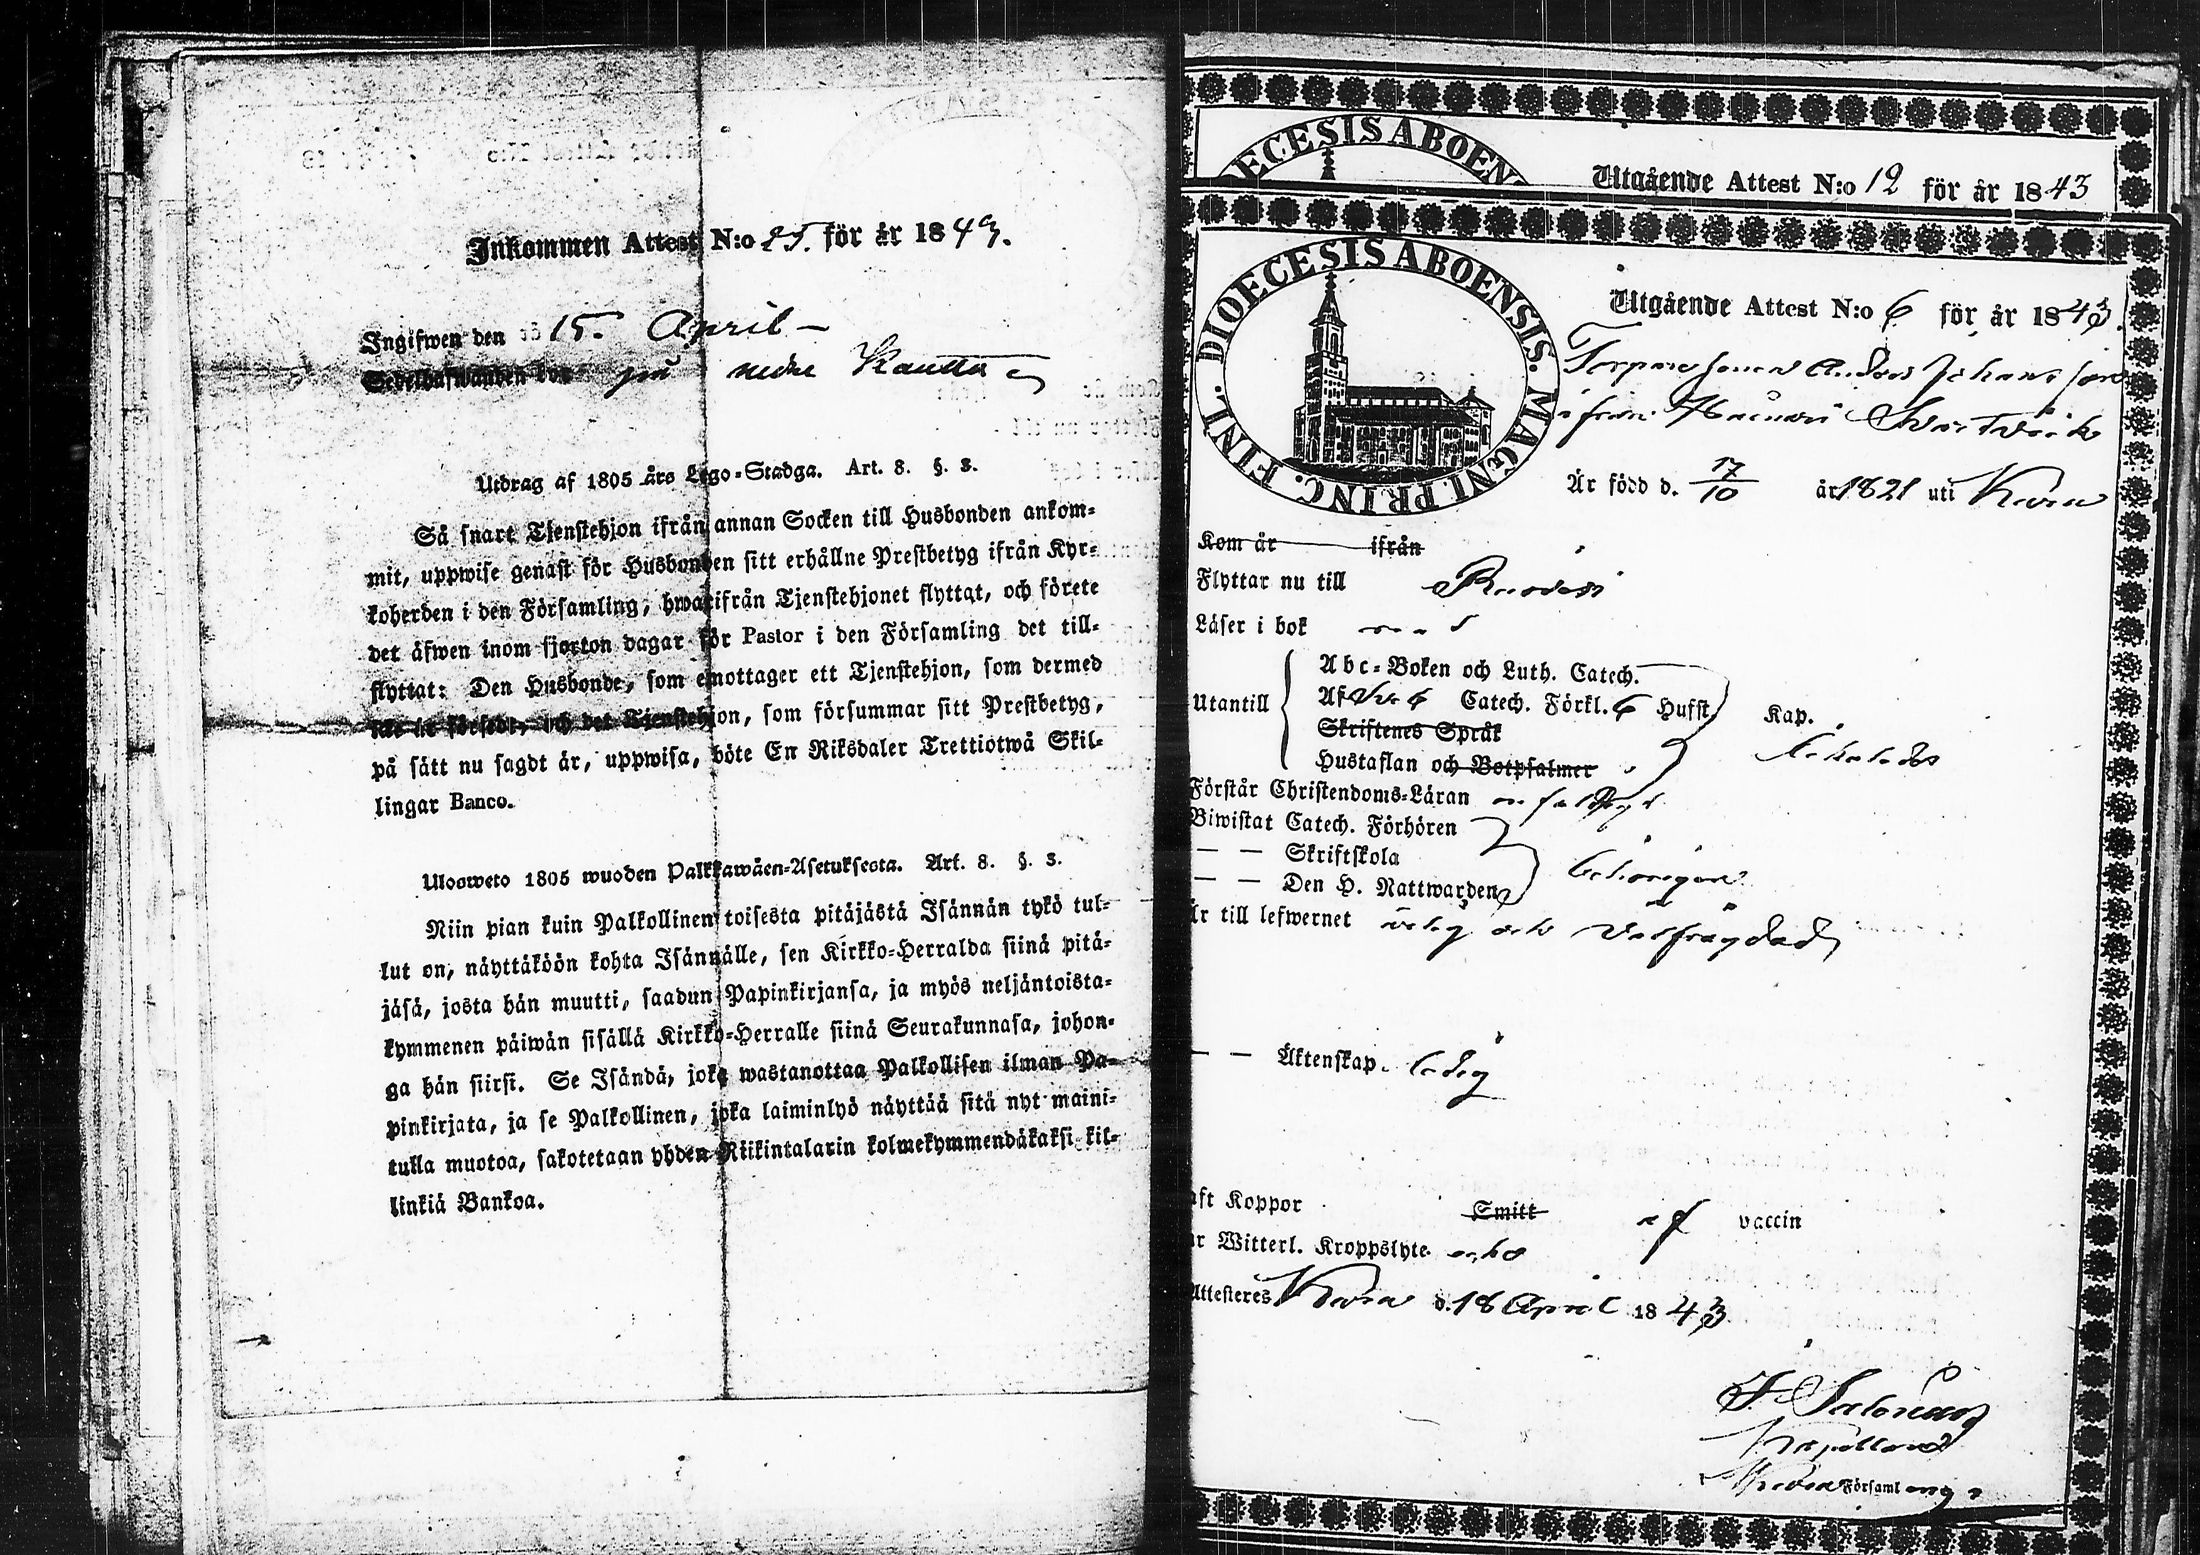 Inkommen Attest N:o 25. för år 1843.
Ingifwen den 15. April
Sedelhafwanden bor på nedre
Utdrag af 1805 års Lego=Stadga. Art. 8. §. 3.
Så snart Tjenstehjon ifrån annan Socken till Husbonden ankom=
mit, uppwise genast för Husbonden sitt erhållne Prestbetyg ifrån Kyr=
koherden i den Församling, hwarifrån Tjenstehjonet flyttat, och förete
det äfwen inom fjorton dagar för Pastor i den Församling det till=
flyttat: Den Husbonde, som emottager ett Tjenstehjon, som dermed
och det Tjenstehjon, som försummar sitt Prestbetyg,
på sätt nu sagdt är, uppwisa, böte En Riksdaler Trettiotwå Skil=
lingar Banco.
Uloosweto 1805 wuoden Palkkawäen=Asetuksesta. Art. 8. §. 3.
Niin pian kuin Palkollinen toisesta pitäjästä Isännän tykö tul=
lut on, näyttäköön kohta Isännälle, sen Kirkko=Herralda siinä pitä=
jäsä, josta hän muutti, saadun Papinkirjansa, ja myös neljäntoista=
kymmenen päiwän sisällä Kirkko=Herralle siinä Seurakunnasa, johon=
ga hän siirsi. Se Isändä, joka wastanottaa Palkollisen ilman Pa=
pinkirjata, ja se Palkollinen, joka laiminlyö näyttää sitä nyt maini=
tulla muotoa, sakotetaan yhden Riikintalarin kolmekymmendäkaksi kil=
linkiä Bankoa.
ECESIS ABOEN
Utgående Attest N:o 12 för år 1843
DIOECESIS ABOENSIS. MAGNI. PRINC. FINL.
Utgående Attest N:o 6 för år 1843.
Torpare sonen Anders Johansson
ifrån Svartvik
Är född d. 17/10 år 1821 uti
Kom år ifrån
Flyttar nu till
Läser i bok
Utantill
Abc=Boken och Luth. Catech.
Af Catech. Förkl. 6 Hufst.
Kap.
Skriftenes Språk
Hustaflan och Botpsalmer
Förstår Christendoms=Läran
Biwistat Catech. Förhören
— — Skriftskola
— — Den H. Nattwarden
behörigen
Är till lefwernet ärlig och välfrägdad
— — Äktenskap. ledig
aft Koppor Smitt af vaccin
ar Witterl. Kroppslyte
Attesteres d. 18 April 1843
Kapellan
Församlings